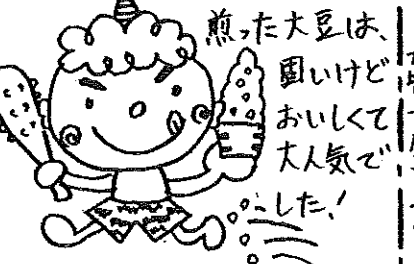 煎った大豆は、
固いけど
おいしくて
大人気で
した!